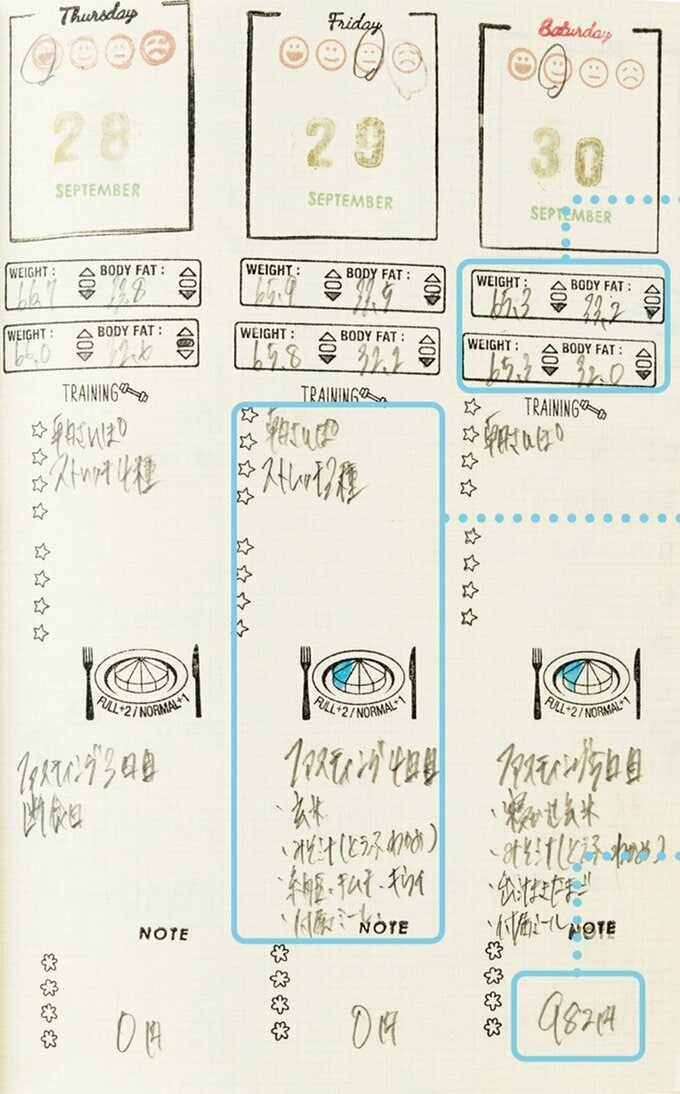 Thursday
28
SEPTEMBER
WEIGHT: 66.7 BODY FAT: 33.8
WEIGHT: 66.0 BODY FAT: 32.6
TRAINING
朝さんぽ
ストレッチ4種
FULL+2/NORMAL+1
ファスティング3日目
断食日
NOTE
0円
Friday
29
SEPTEMBER
WEIGHT: 65.9 BODY FAT: 33.5
WEIGHT: 65.8 BODY FAT: 32.2
TRAINING
朝さんぽ
ストレッチ3種
FULL+2/NORMAL+1
ファスティング4日目
・玄米
・みそ汁(とうふ、わかめ)
・納豆、キムチ、
・付属ミール
NOTE
0円
Saturday
30
SEPTEMBER
WEIGHT: 65.3 BODY FAT: 33.2
WEIGHT: 65.3 BODY FAT: 32.0
TRAINING
朝さんぽ
FULL+2/NORMAL+1
ファスティング5日目
・寝かせ玄米
・みそ汁(とうふ、わかめ)
・出汁まきたまご
・付属ミール
NOTE
982円